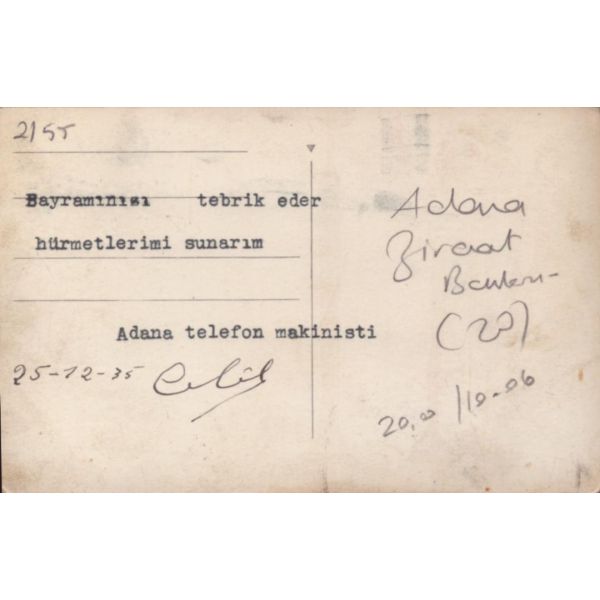 2155
Bayramınızı tebrik eder
hürmetlerimi sunarım
Adana telefon makinisti
25-12-35
Adana
Ziraat
Bankası
(20)
20,00 /10-06